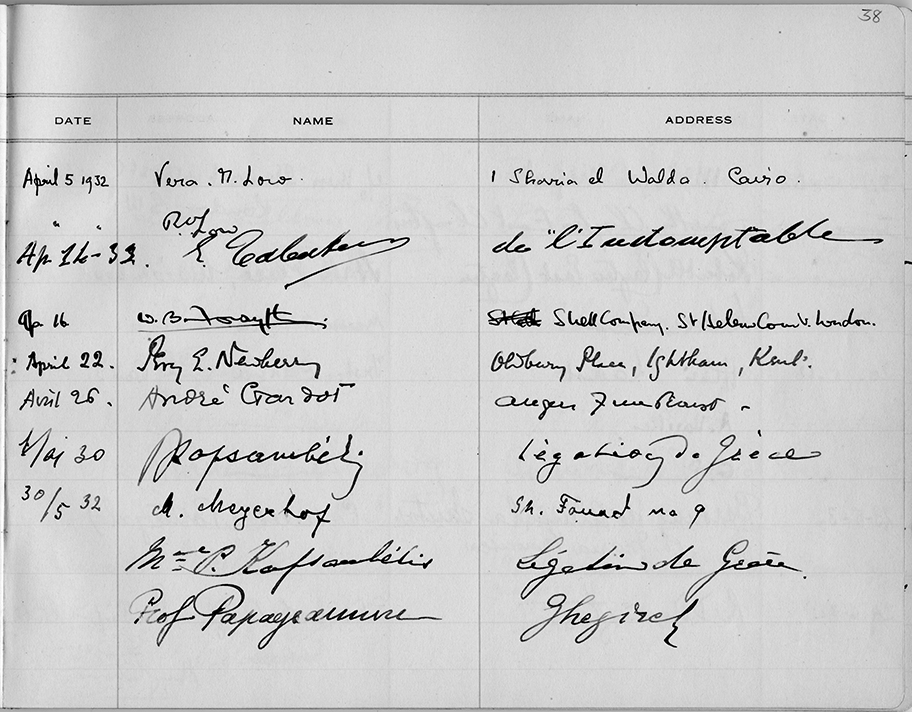 38
DATE NAME ADDRESS
April 5 1932 Vera. M. Low. 1 Sharia el Walda. Cairo.
" " Low
Ap 16-32. E de "l'Indomptable
Ap 16 W. B. Forsyth. Shell Company. St Helens Court. London.
April 22. Percy E. Newberry Oldbury Place, Ightham, Kent.
Avril 26. André Cardot
Mai 30 Kapsambélis Légation de Grèce
30/5 32 M. Meyerhof Sh. Fouad no 9
Mme P. Kapsambélis Légation de Grèce.
Prof Papayoannou